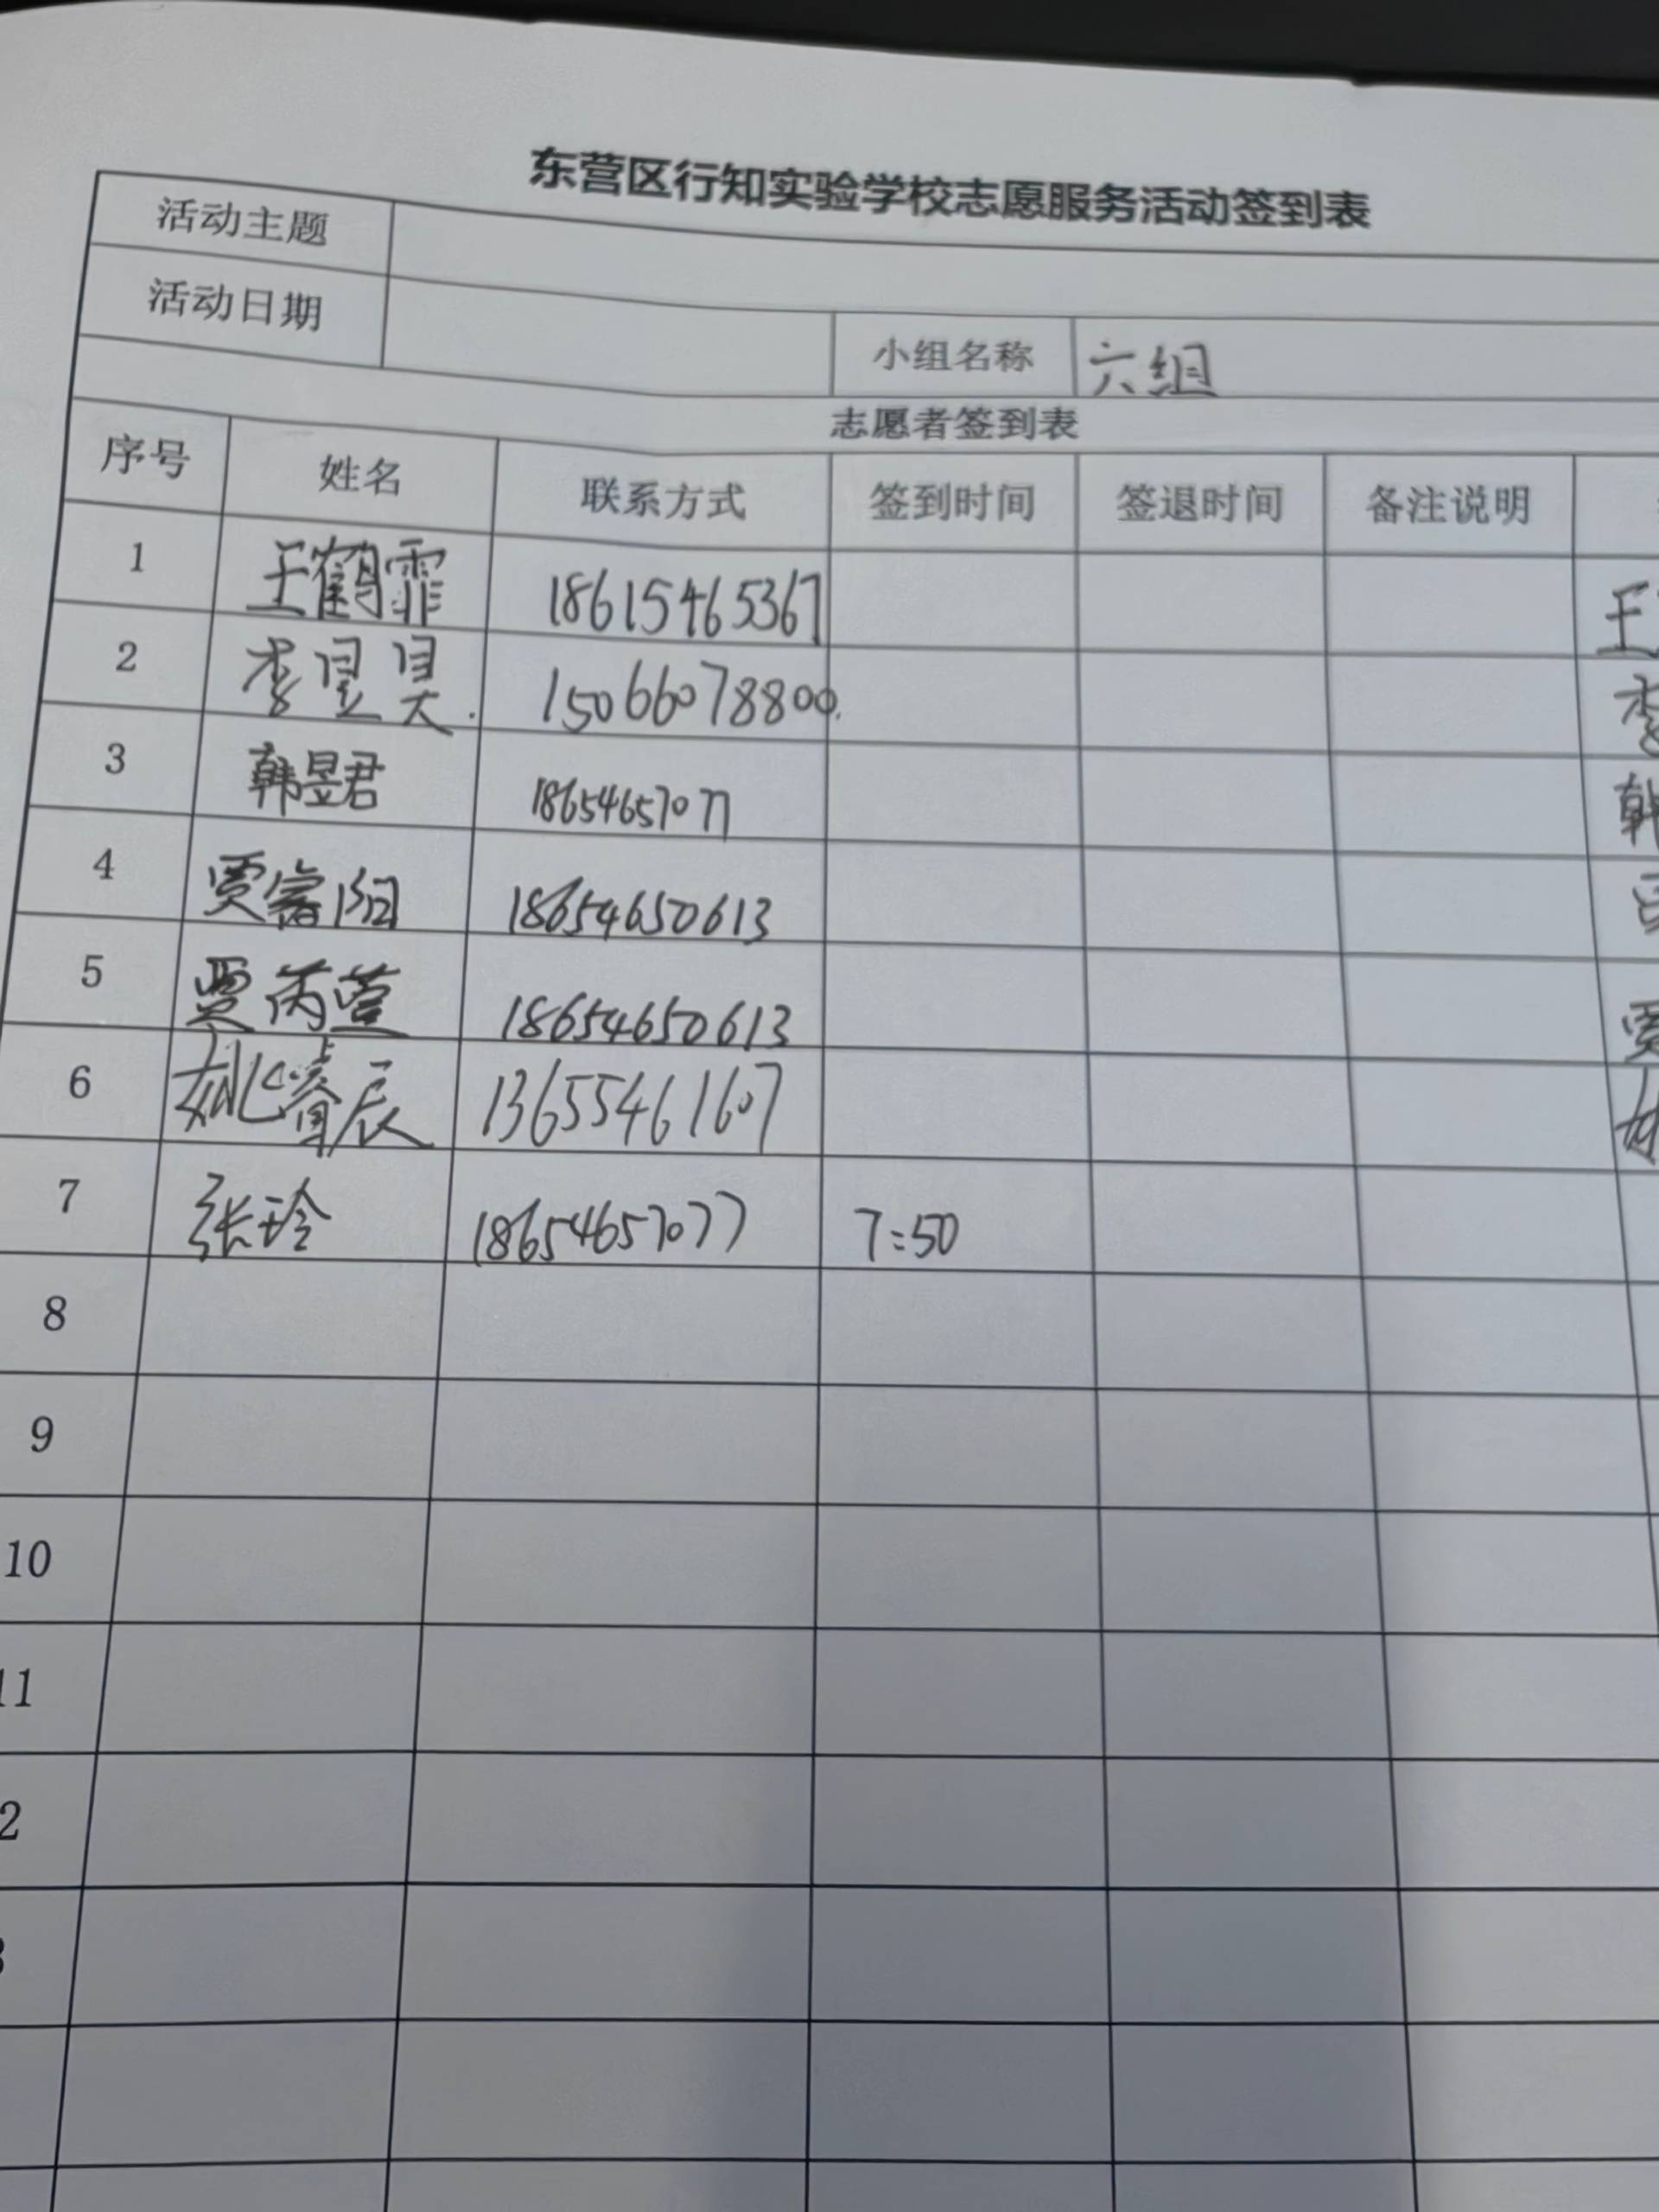 东营区行知实验学校志愿服务活动签到表
活动主题
活动日期 小组名称 六组
志愿者签到表
序号 姓名 联系方式 签到时间 签退时间 备注说明
1 王鹤霏 18615465367 王
2 李昱昊. 15066078800. 李
3 韩昱君 18654657077 韩
4 贾睿阳 18654650613
5 贾芮萱 18654650613 贾
6 姚睿辰 13655461607
7 张玲 18654657077 7:50
8
9
10
11
2
3